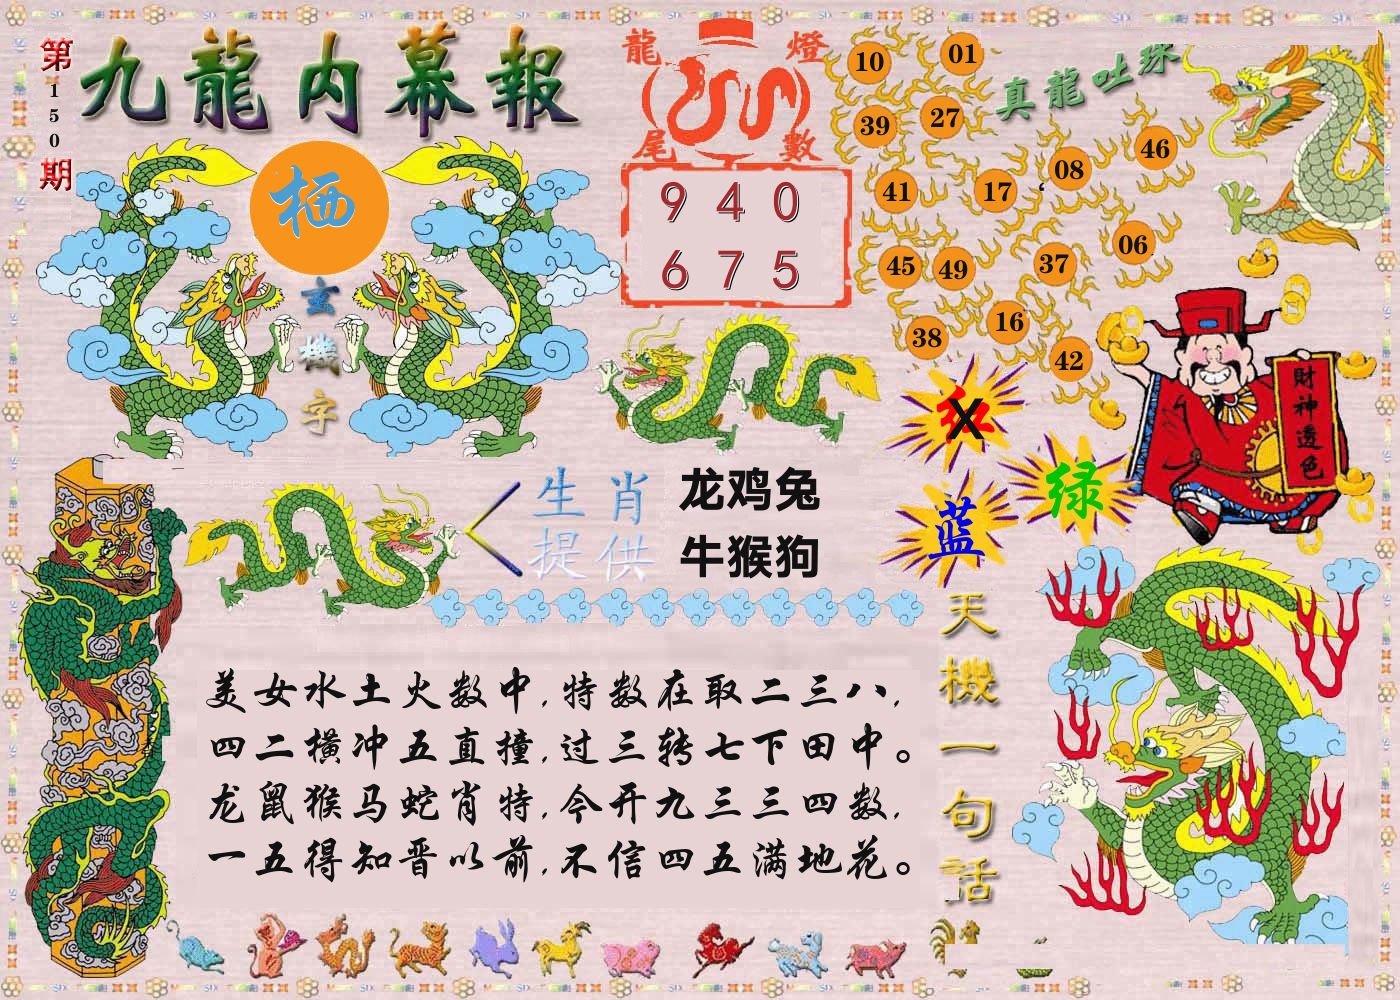 第150期
九龍内幕報
栖
玄機字
龍燈
尾數
9 4 0
6 7 5
真龍吐珠
10 01
39 27
41 17 08 46
45 49 37 06
38 16 42
財神透色
红 X
绿
蓝
生肖
提供
龙鸡兔
牛猴狗
天機一句話
美女水土火数中,特数在取二三八,
四二横冲五直撞,过三转七下田中。
龙鼠猴马蛇肖特,今开九三三四数,
一五得知晋以前,不信四五满地花。